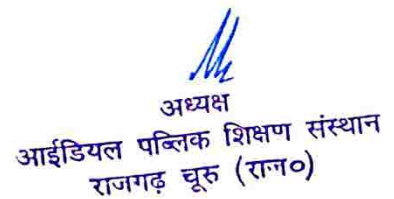 अध्यक्ष
आईडियल पब्लिक शिक्षण संस्थान
राजगढ़ चूरु (राज०)